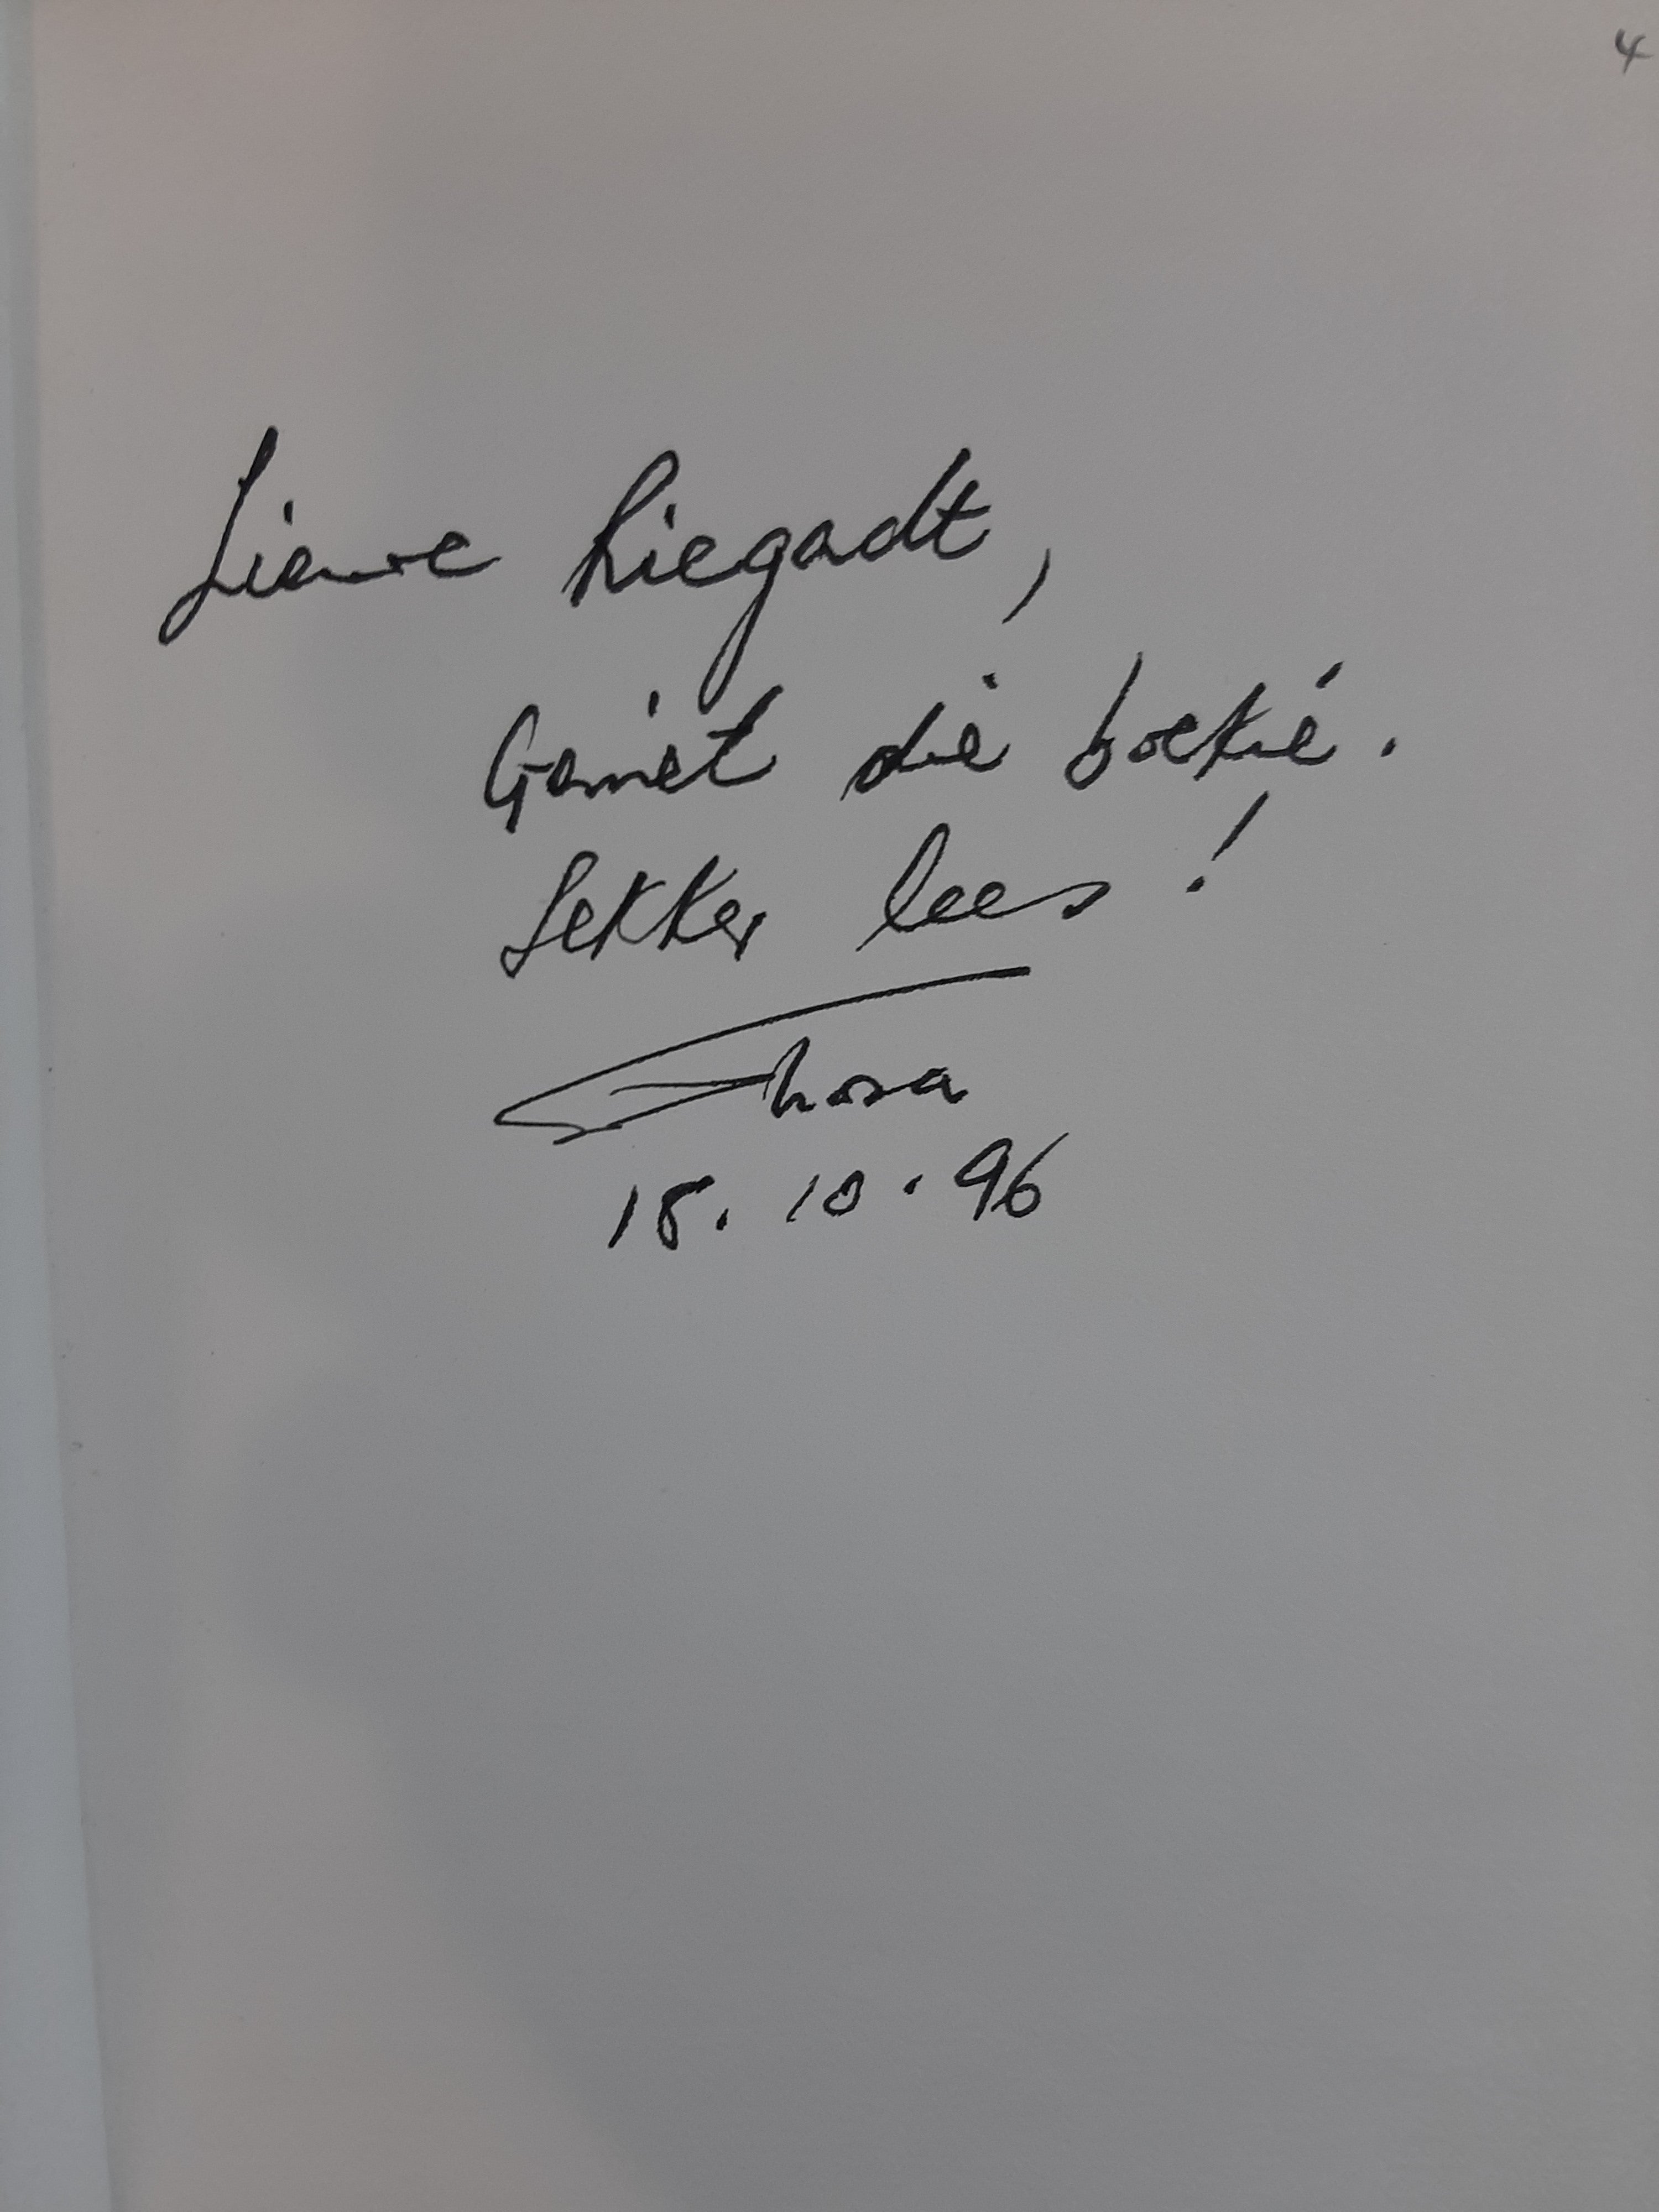 4
Liewe Liegadt,
Geniet die boekie.
Lekker lees!
18.10.96